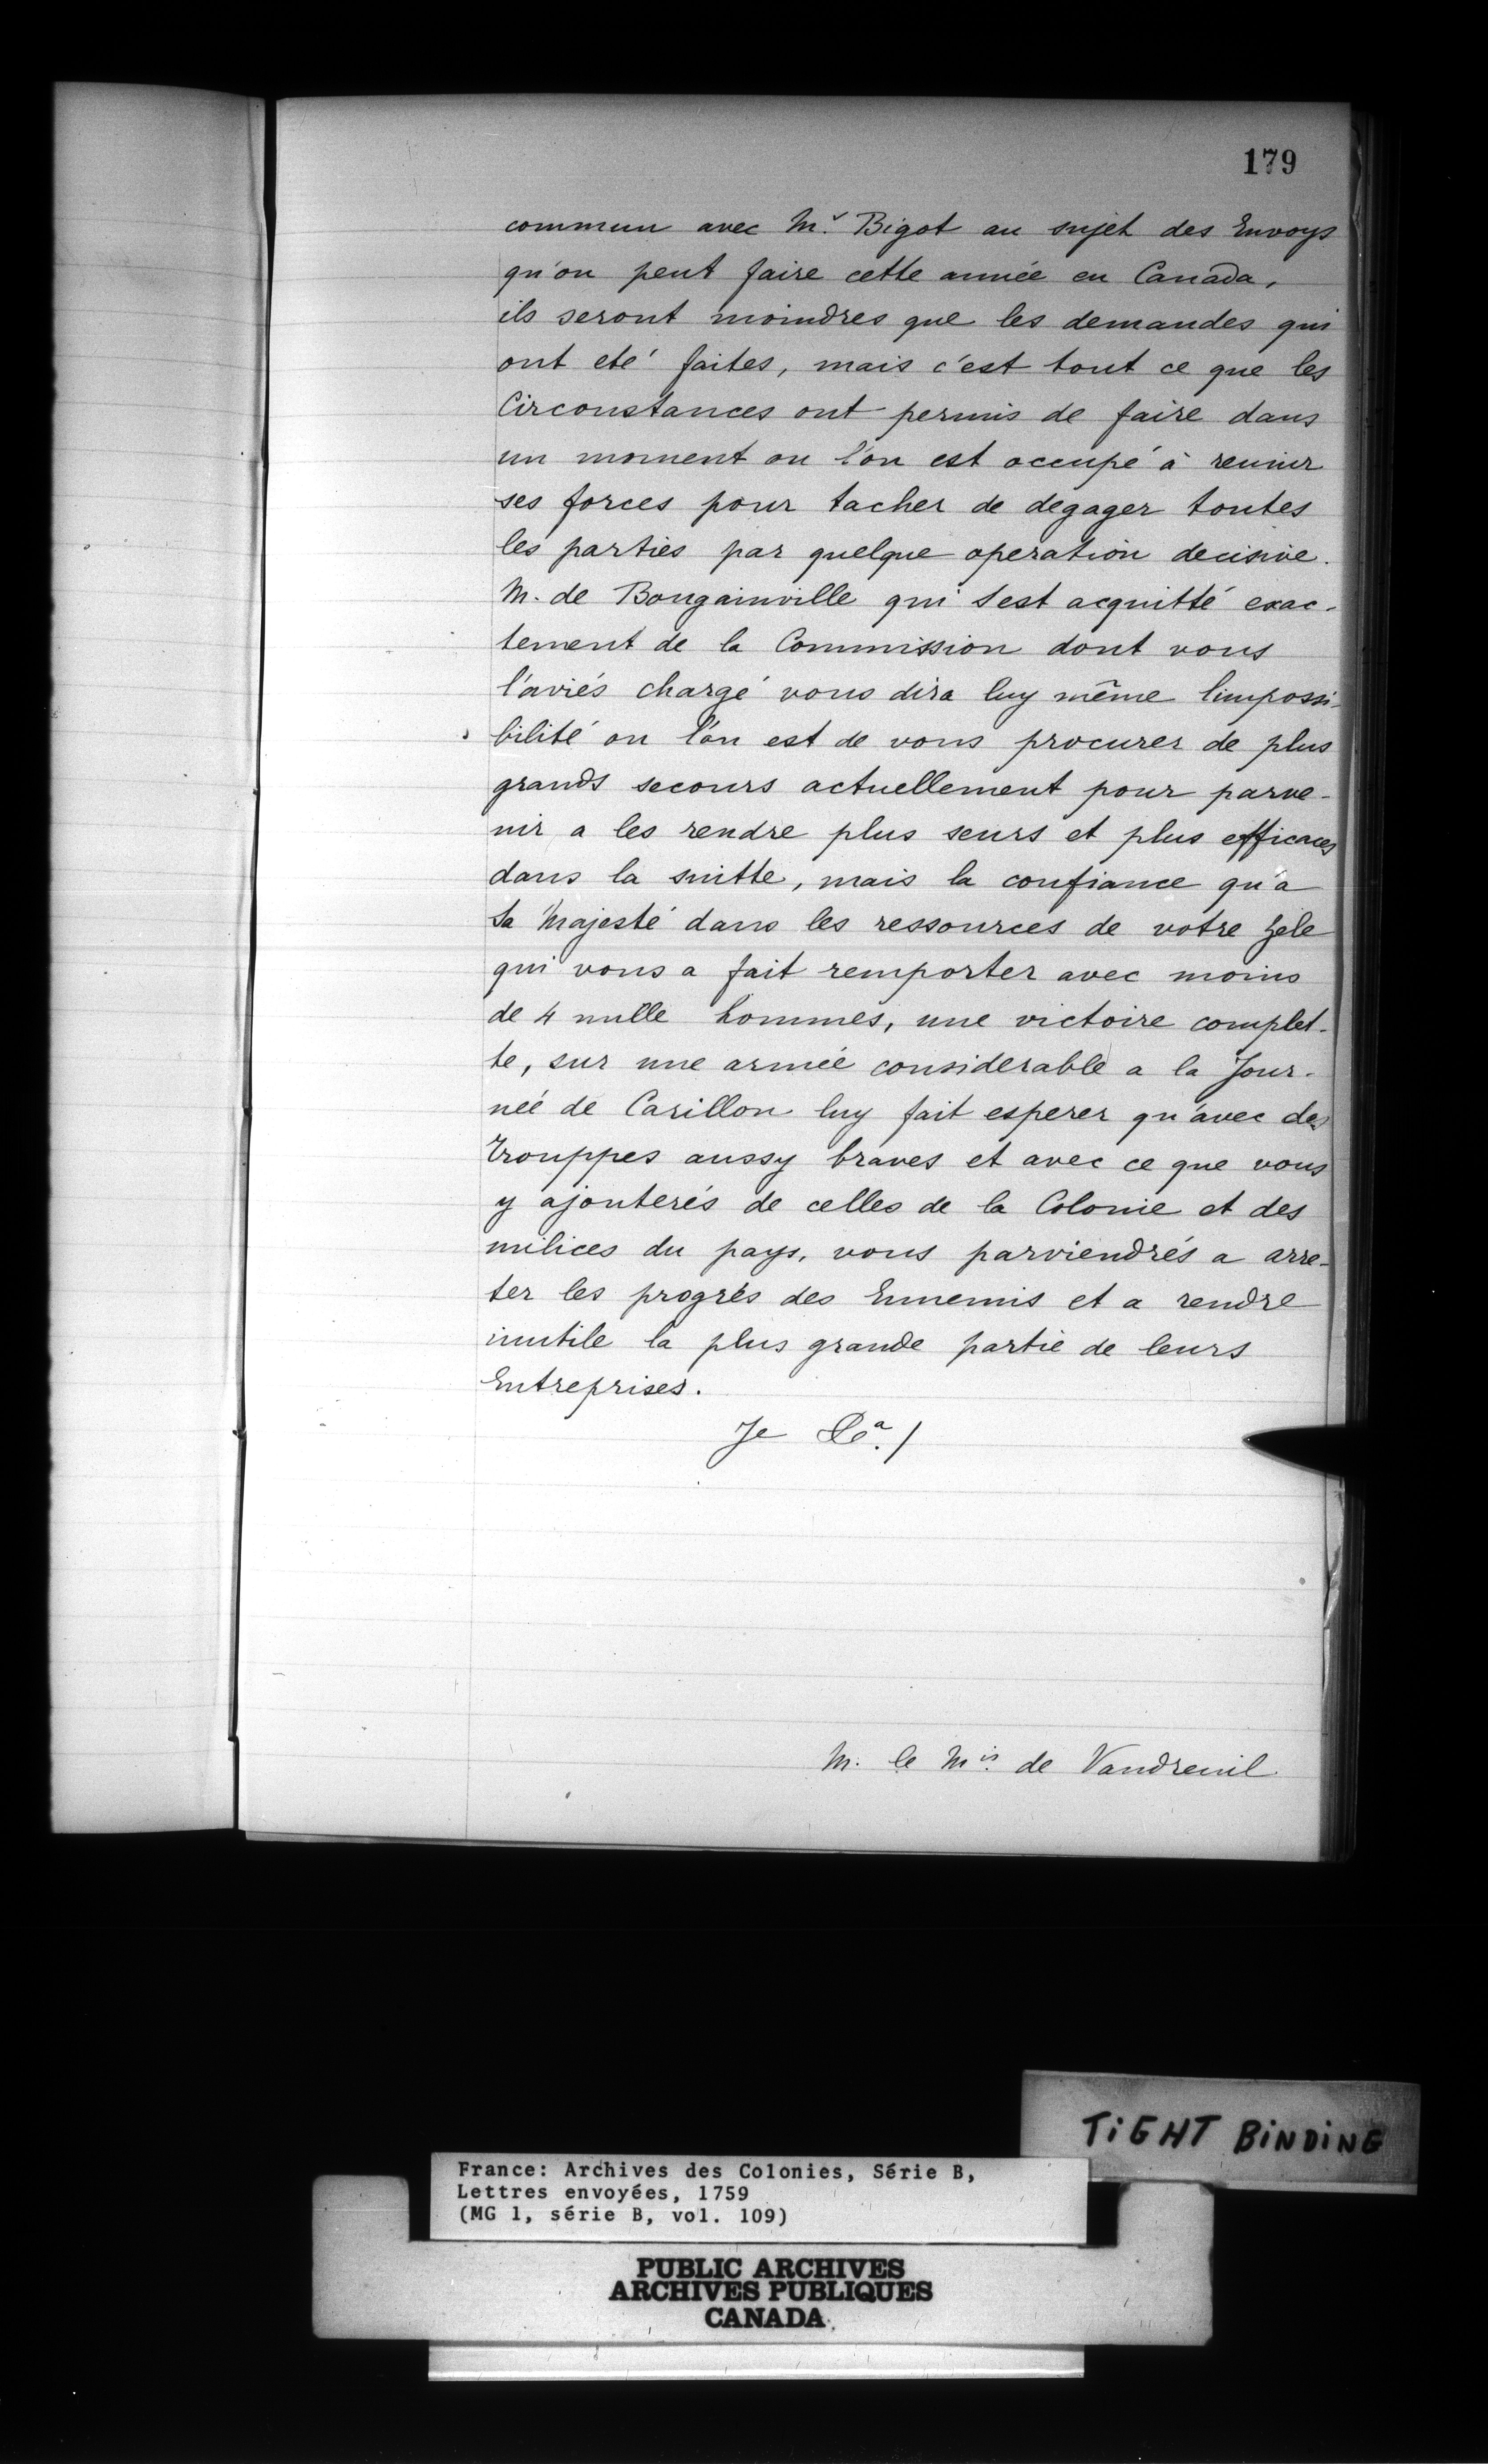 179
commun avec Mr. Bigot au sujet des Envoys
qu'on peut faire cette année en Canada,
ils seront moindres que les demandes qui
ont eté faites, mais c'est tout ce que les
Circonstances ont permis de faire dans
un moment ou l'on est occupé à reunir
ses forces pour tacher de degager toutes
les parties par quelque operation decisive.
M. de Bougainville qui s'est acquitté exac-
tement de la Commission dont vous
l'aviés chargé vous dira luy même l'impossi-
bilité ou l'on est de vous procurer de plus
grands secours actuellement pour parve-
nir a les rendre plus seurs et plus efficaces
dans la suitte, mais la confiance qu'a
Sa Majesté dans les ressources de votre Zele
qui vous a fait remporter avec moins
de 4 mille hommes, une victoire complet-
te, sur une armée considerable a la Jour-
neé de Carillon luy fait esperer qu'avec des
trouppes aussy braves et avec ce que vous
y ajouterés de celles de la Colonie et des
milices du pays, vous parviendrés a arre-
ter les progrés des Ennemis et a rendre
inutile la plus grande partie de leurs
Entreprises.
Je
M. le Mis. de Vaudreuil.
TiGHT BiNDiNG
France: Archives des Colonies, Série B,
Lettres envoyées, 1759
(MG 1, série B, vol. 109)
PUBLIC ARCHIVES
ARCHIVES PUBLIQUES
CANADA